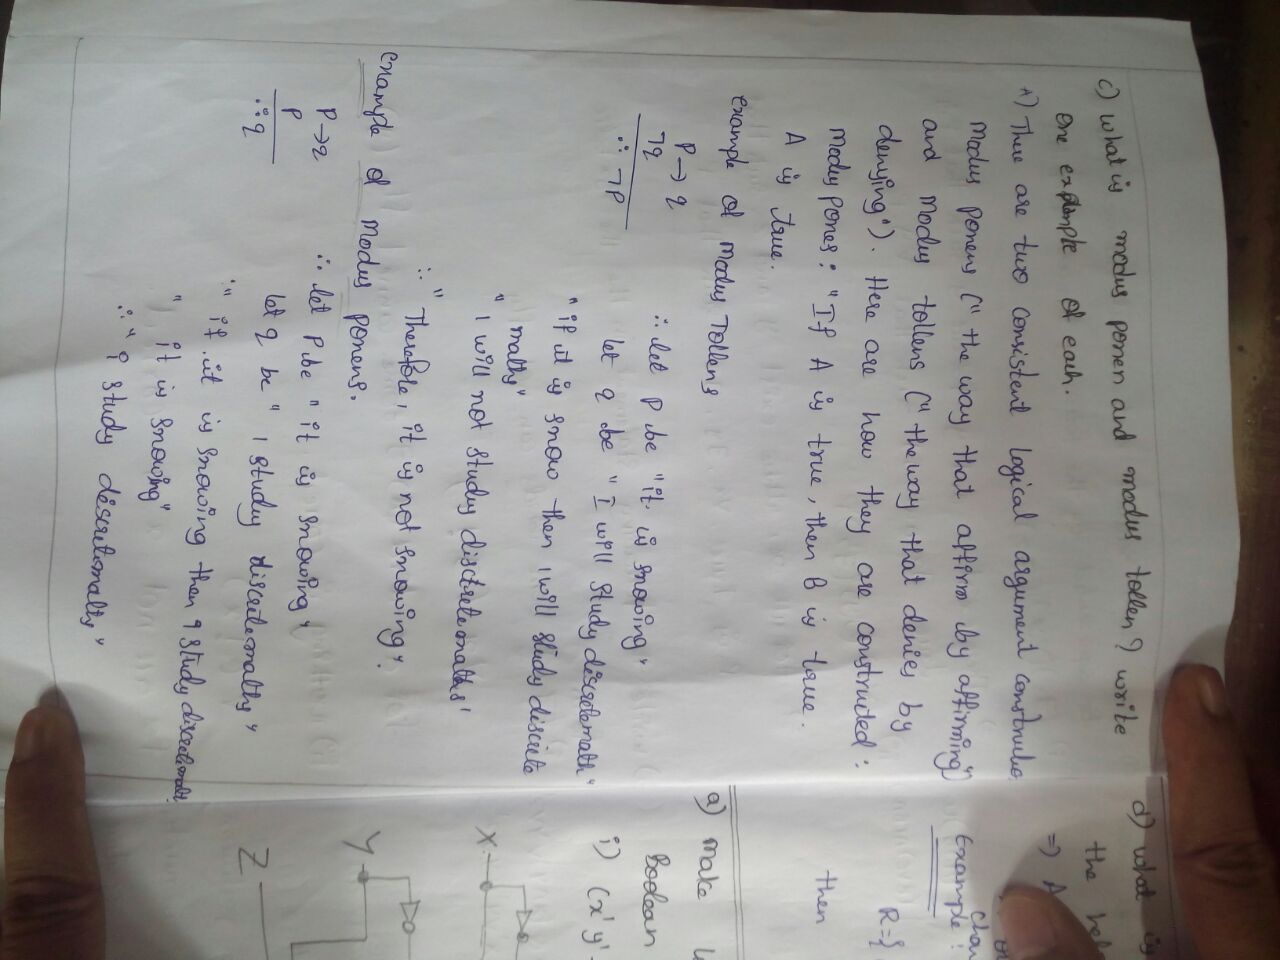 c) what is modus ponen and modus tollen? write
one example of each.
A) There are two consistent logical argument
modus ponens ("the way that affirm by affirming")
and modus tollens ("the way that denies by
denying"). Here are how they are constructed:
modus pones: "If A is true, then B is true.
A is true.
example of modus Tollens
P → q
¬q
∴ ¬P
∴ let P be "it is snowing"
let q be "I will study discrete math"
"if it is snow then I will study discrete
maths"
"I will not study discrete maths"
∴ "Therefore, it is not snowing".
example of modus ponens.
P → q
P
∴ q
∴ let P be "it is snowing"
let q be "I study discrete maths"
"if it is snowing then I study
"it is snowing"
∴ "I study
d) what is
the
=> A
Example:
R={
then
a) make
Boolean
i) (x'y'
X
Y
Z